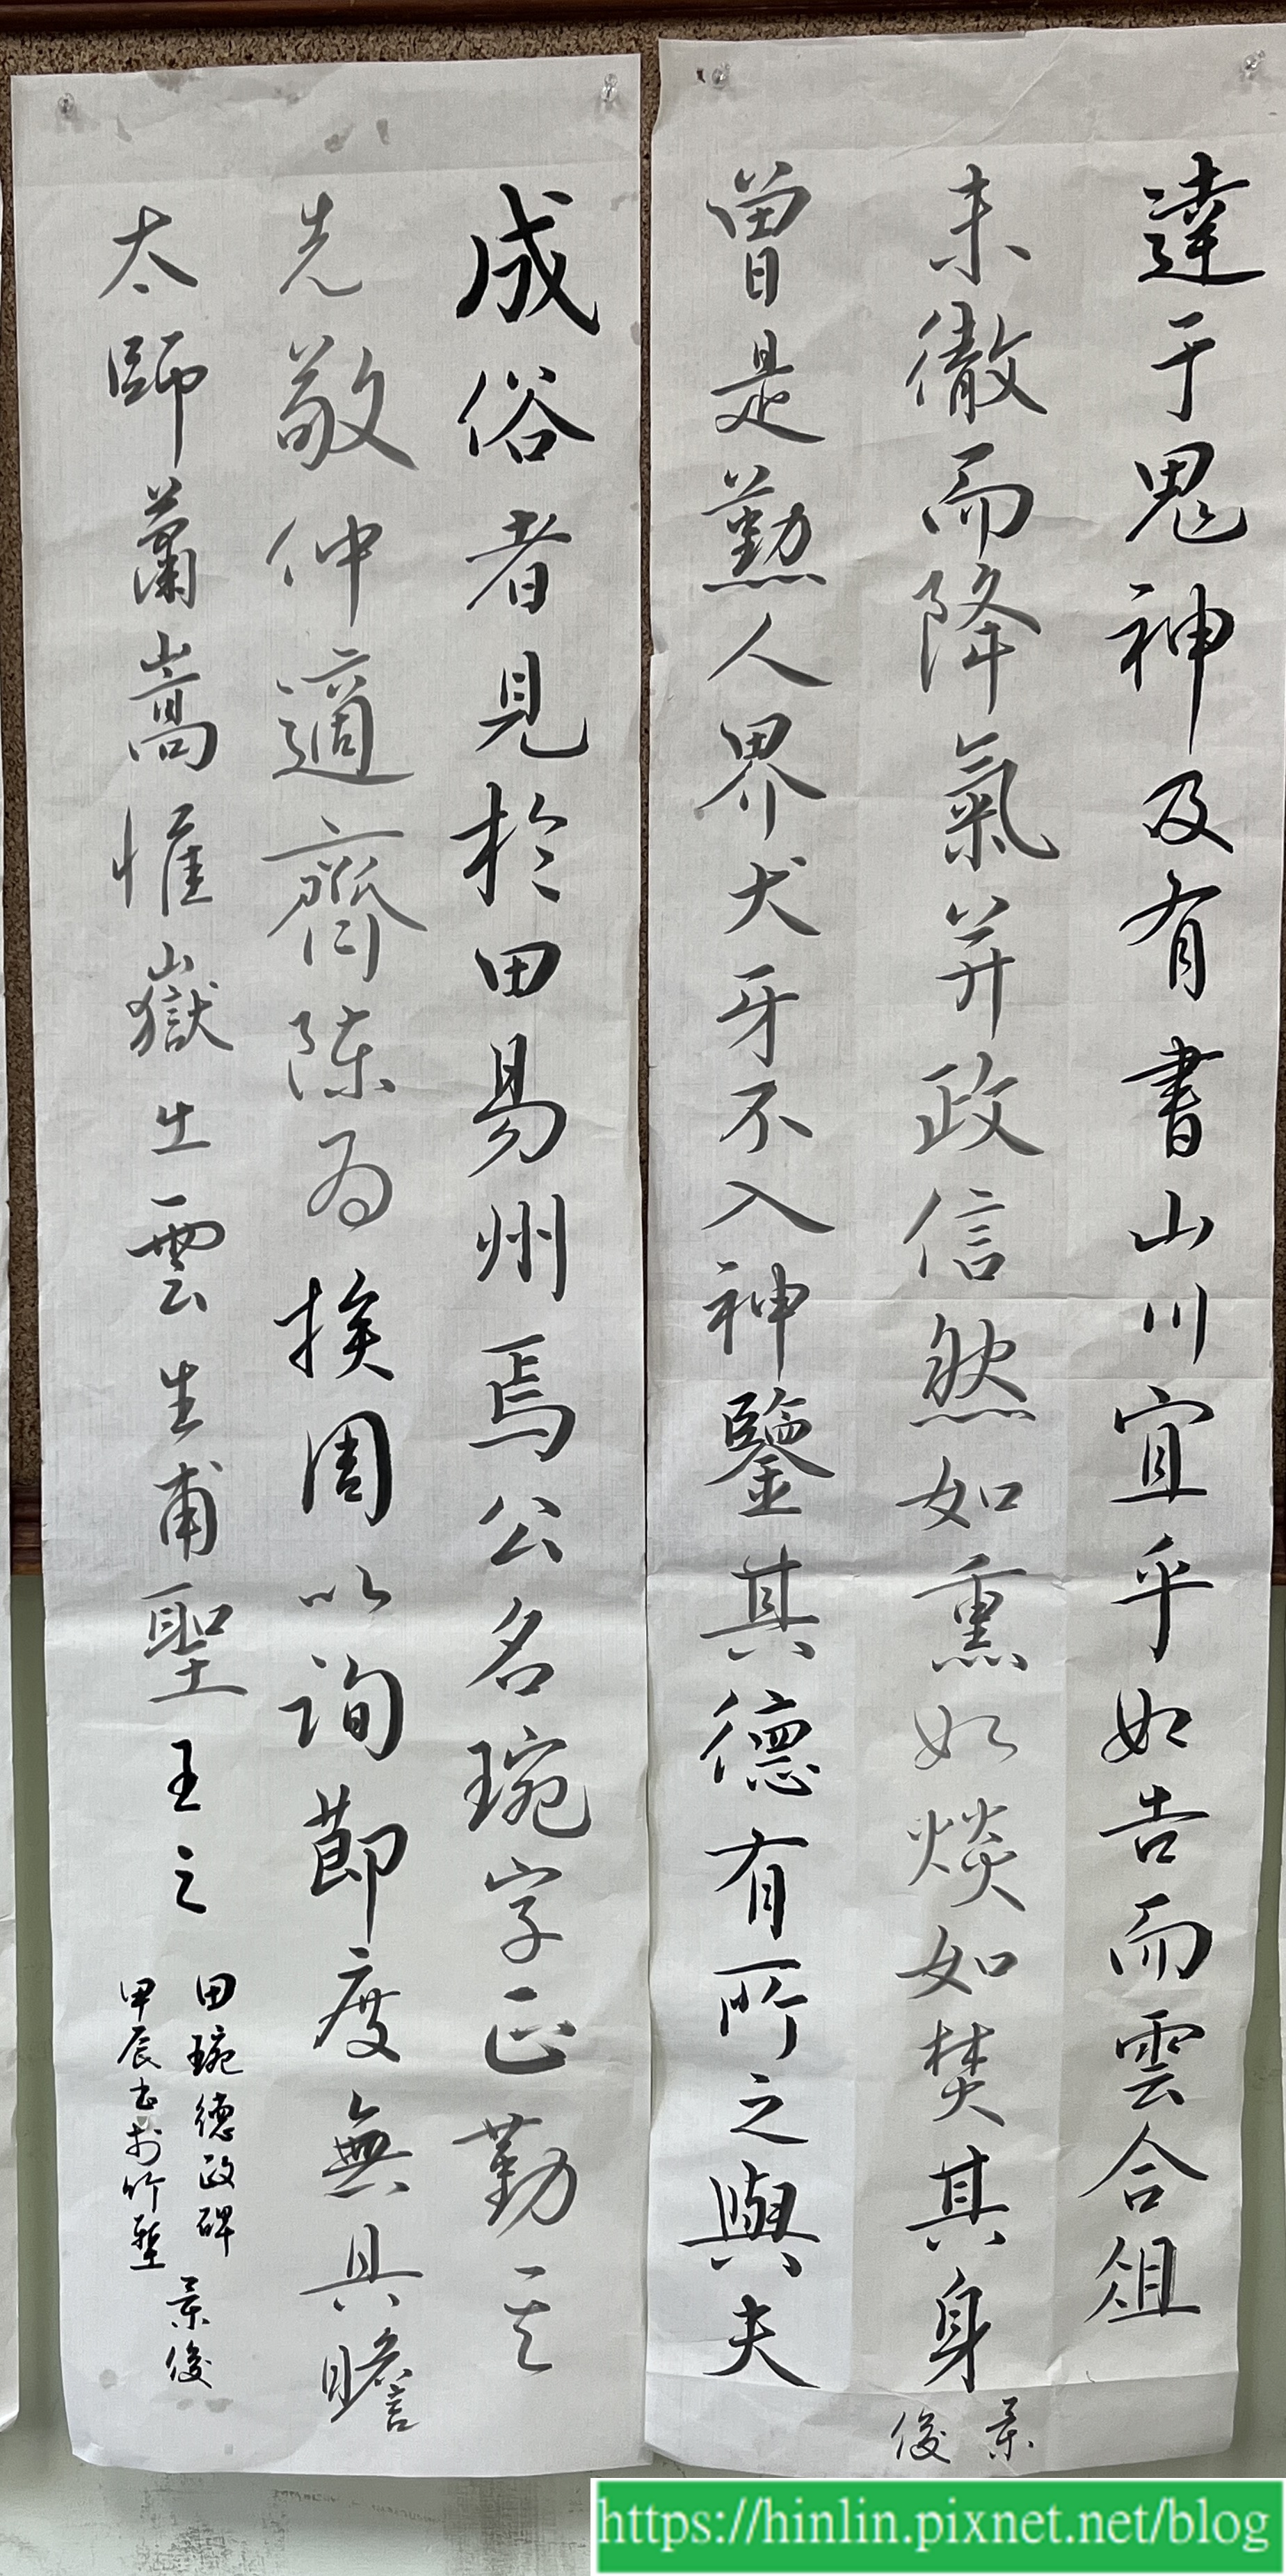 達于鬼神及有書山川宜乎如告而雲合俎
未徹而降氣并政信然如熏如燄如焚其身
曾是勤人界犬牙不入神鑒其德有所之與夫
景俊
成俗者見於田易州焉公名琬字正勤其
先敬仲適齊陳為挨周以詢節度無具瞻
太師蕭嵩惟嶽生雲生甫聖王之
田琬德政碑
甲辰書於竹塹
景俊
https://hinlin.pixnet.net/blog